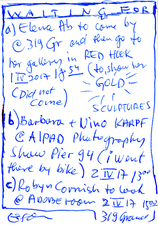 WAITING FOR
a) Elena Ab to come by
@ 319 Gr and then go to
her gallery in RED HOOK
1 IV 2017 18 (to show her
GOLD
(Did not
come)
SCULPTURES
b) Barbara + Nino KARPF
@ AIPAD Photography
Show Pier 94 (I went
there by bike) 2 IV 17
c) Robyn Cornish to look
@ ADOBE room 2 IV 17
319 Grand)